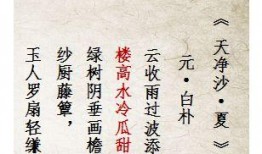 《天净沙·夏》
元·白朴
云收雨过波添
楼高水冷瓜甜
绿树阴垂画檐
纱厨藤簟,
玉人罗扇轻缣